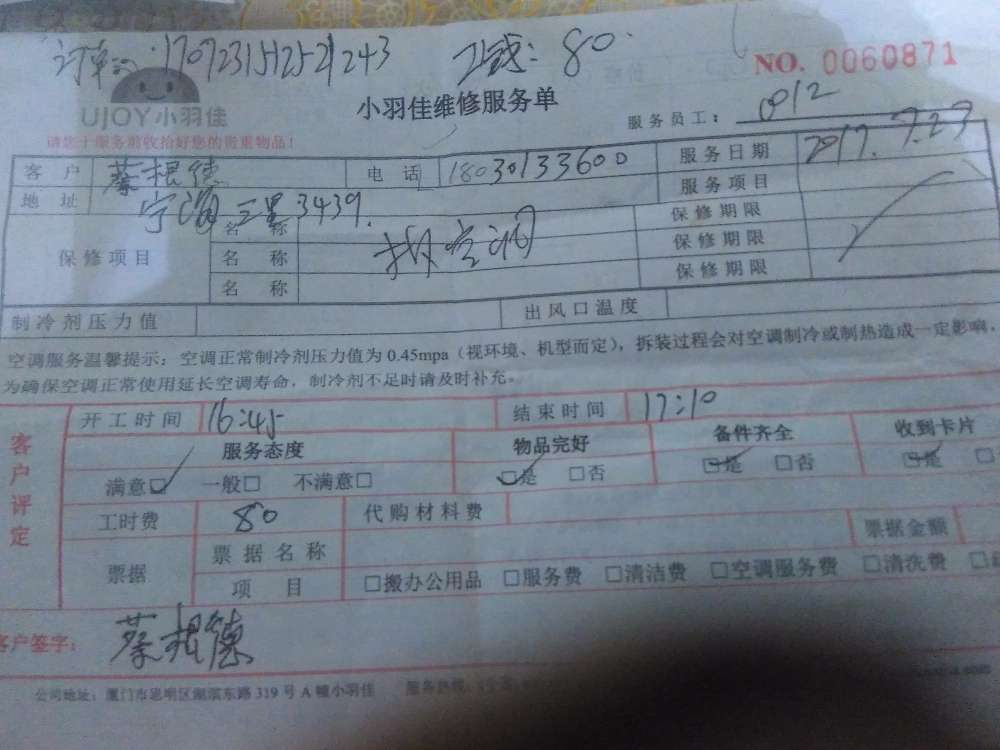 订单号:1707231512521243 工钱:80.
NO. 0060871
UJOY小羽佳
小羽佳维修服务单
服务员工: 0912
请您于服务前收拾好您的贵重物品!
客户 蔡根德 电话 18030133600 服务日期 2017.7.23
地址 3439. 服务项目
保修项目 名称 保修期限
名称 拆空调 保修期限
名称 保修期限
制冷剂压力值 出风口温度
空调服务温馨提示:空调正常制冷剂压力值为 0.45mpa(视环境、机型而定),拆装过程会对空调制冷或制热造成一定影响,
为确保空调正常使用延长空调寿命,制冷剂不足时请及时补充。
客户评定
开工时间 16:45 结束时间 17:10
服务态度 物品完好 备件齐全 收到卡片
满意☑ 一般□ 不满意□ ☑是 □否 ☑是 □否 ☑是 □
工时费 80 代购材料费
票据 票据名称 票据金额
项目 □搬办公用品 □服务费 □清洁费 □空调服务费 □清洗费 □
客户签字: 蔡根德
公司地址:厦门市思明区湖滨东路 319 号 A 幢小羽佳 服务热线: